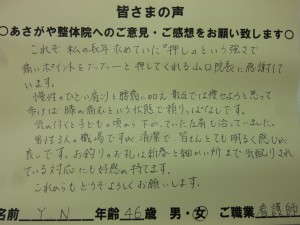 皆さまの声
○あさがや整体院へのご意見・ご感想をお願い致します○
これぞ私の長年求めていた『押し』という強さで
痛いポイントをグーグーと押してくれる山口院長に感謝して
います。
慢性のひどい肩こりと腰痛に加え 最近では痩せようと思って
歩けば膝の痛むという状態で頼りっぱなしです。
先の行くと子どもの頃から下っていた左肩も治っていました。
男ばかりの職場ですが、清潔で 皆さんとても明るく感じが
良いです。お釣りのお札は新券と細かい所まで気配りされ
ている対応にも好感が持てます。
これからもどうぞよろしくお願いします。
名前 Y.N 年齢 46歳 男・女 ご職業 看護師